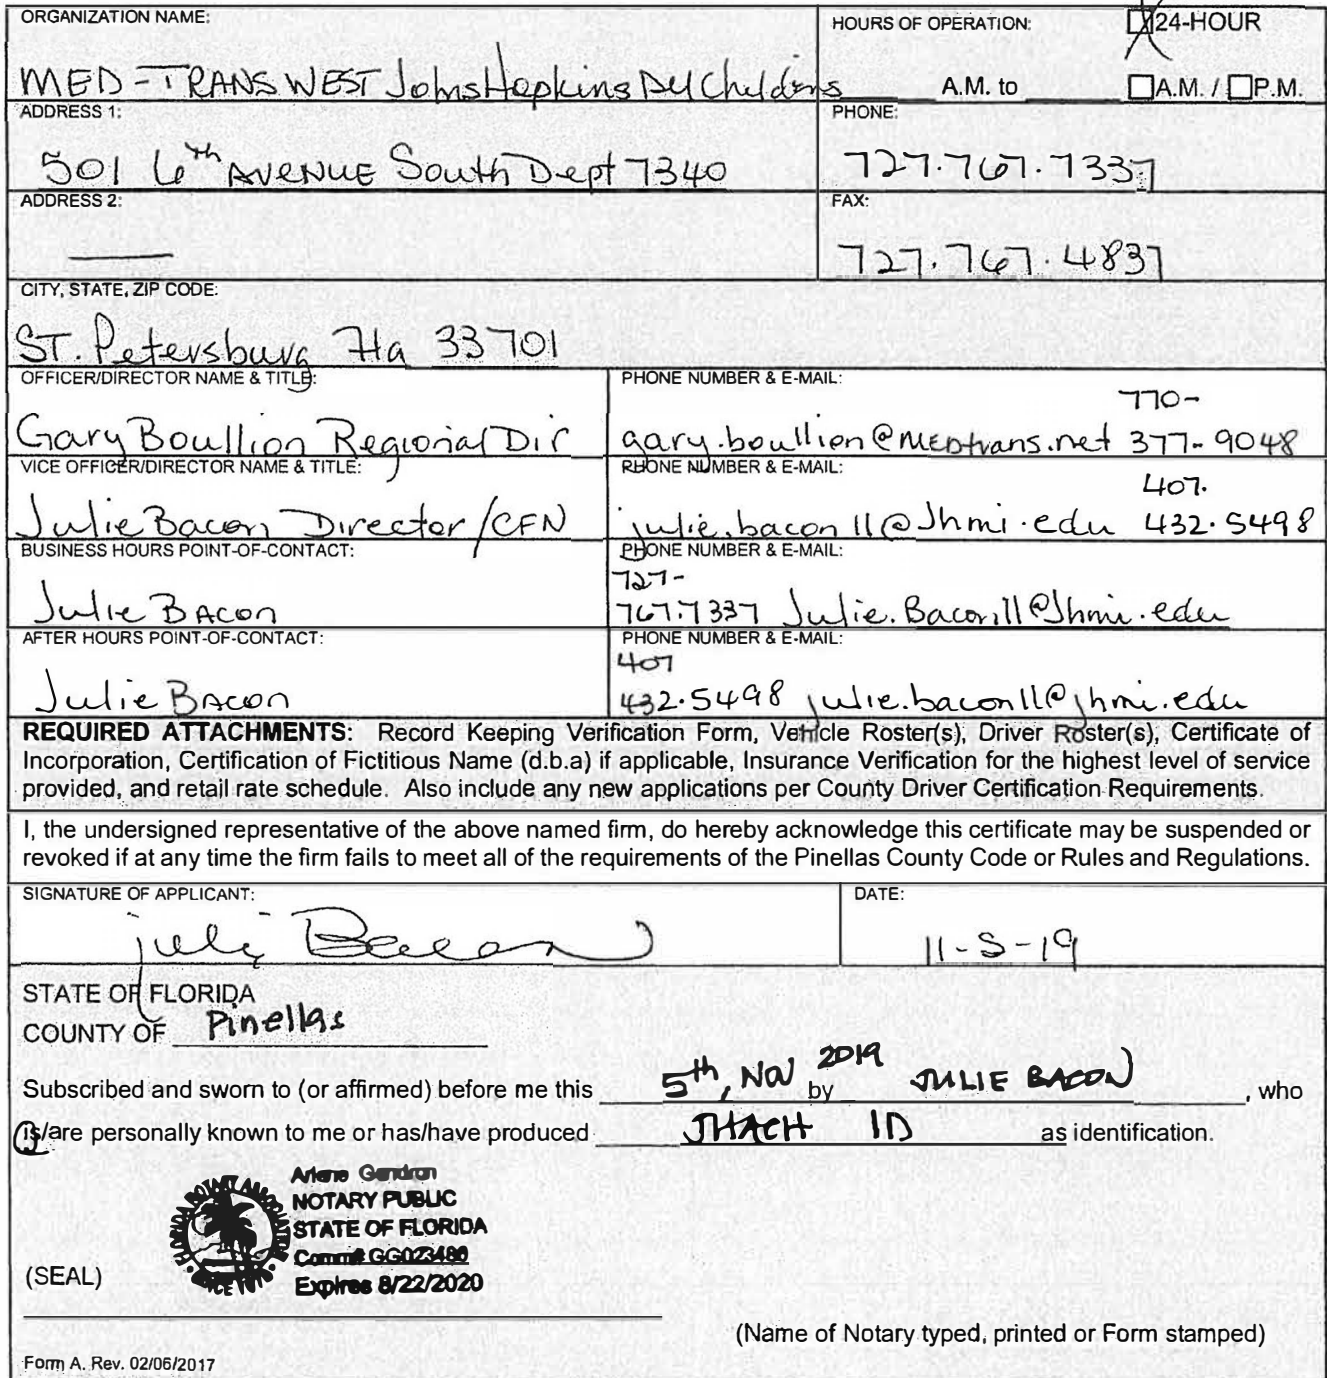 ORGANIZATION NAME:
MED-TRANS WEST Johns Hopkins All Childrens
HOURS OF OPERATION: 24-HOUR
A.M. to A.M. / P.M.
ADDRESS 1:
501 6th AVENUE South Dept 7340
PHONE:
727.767.7337
ADDRESS 2:
FAX:
727.767.4837
CITY, STATE, ZIP CODE:
ST. Petersburg Fla 33701
OFFICER/DIRECTOR NAME & TITLE:
Gary Boullion Regional Dir
PHONE NUMBER & E-MAIL:
770-
gary.boullion@MEDtrans.net 377-9048
VICE OFFICER/DIRECTOR NAME & TITLE:
Julie Bacon Director/CFN
PHONE NUMBER & E-MAIL:
407.
julie.bacon11@Jhmi.edu 432.5498
BUSINESS HOURS POINT-OF-CONTACT:
Julie BAcon
PHONE NUMBER & E-MAIL:
727-
767.7337 Julie.Bacon11@Jhmi.edu
AFTER HOURS POINT-OF-CONTACT:
Julie BAcon
PHONE NUMBER & E-MAIL:
407
432.5498 julie.bacon11@jhmi.edu
REQUIRED ATTACHMENTS: Record Keeping Verification Form, Vehicle Roster(s), Driver Roster(s), Certificate of
Incorporation, Certification of Fictitious Name (d.b.a) if applicable, Insurance Verification for the highest level of service
provided, and retail rate schedule. Also include any new applications per County Driver Certification Requirements.
I, the undersigned representative of the above named firm, do hereby acknowledge this certificate may be suspended or
revoked if at any time the firm fails to meet all of the requirements of the Pinellas County Code or Rules and Regulations.
SIGNATURE OF APPLICANT:
Julie Bacon
DATE:
11-5-19
STATE OF FLORIDA
COUNTY OF Pinellas
Subscribed and sworn to (or affirmed) before me this 5th, Nov 2019 by JULIE BACON, who
is/are personally known to me or has/have produced JHACH ID as identification.
Arlene Gendron
NOTARY PUBLIC
STATE OF FLORIDA
Comm# GG023480
Expires 8/22/2020
(SEAL)
(Name of Notary typed, printed or Form stamped)
Form A. Rev. 02/06/2017